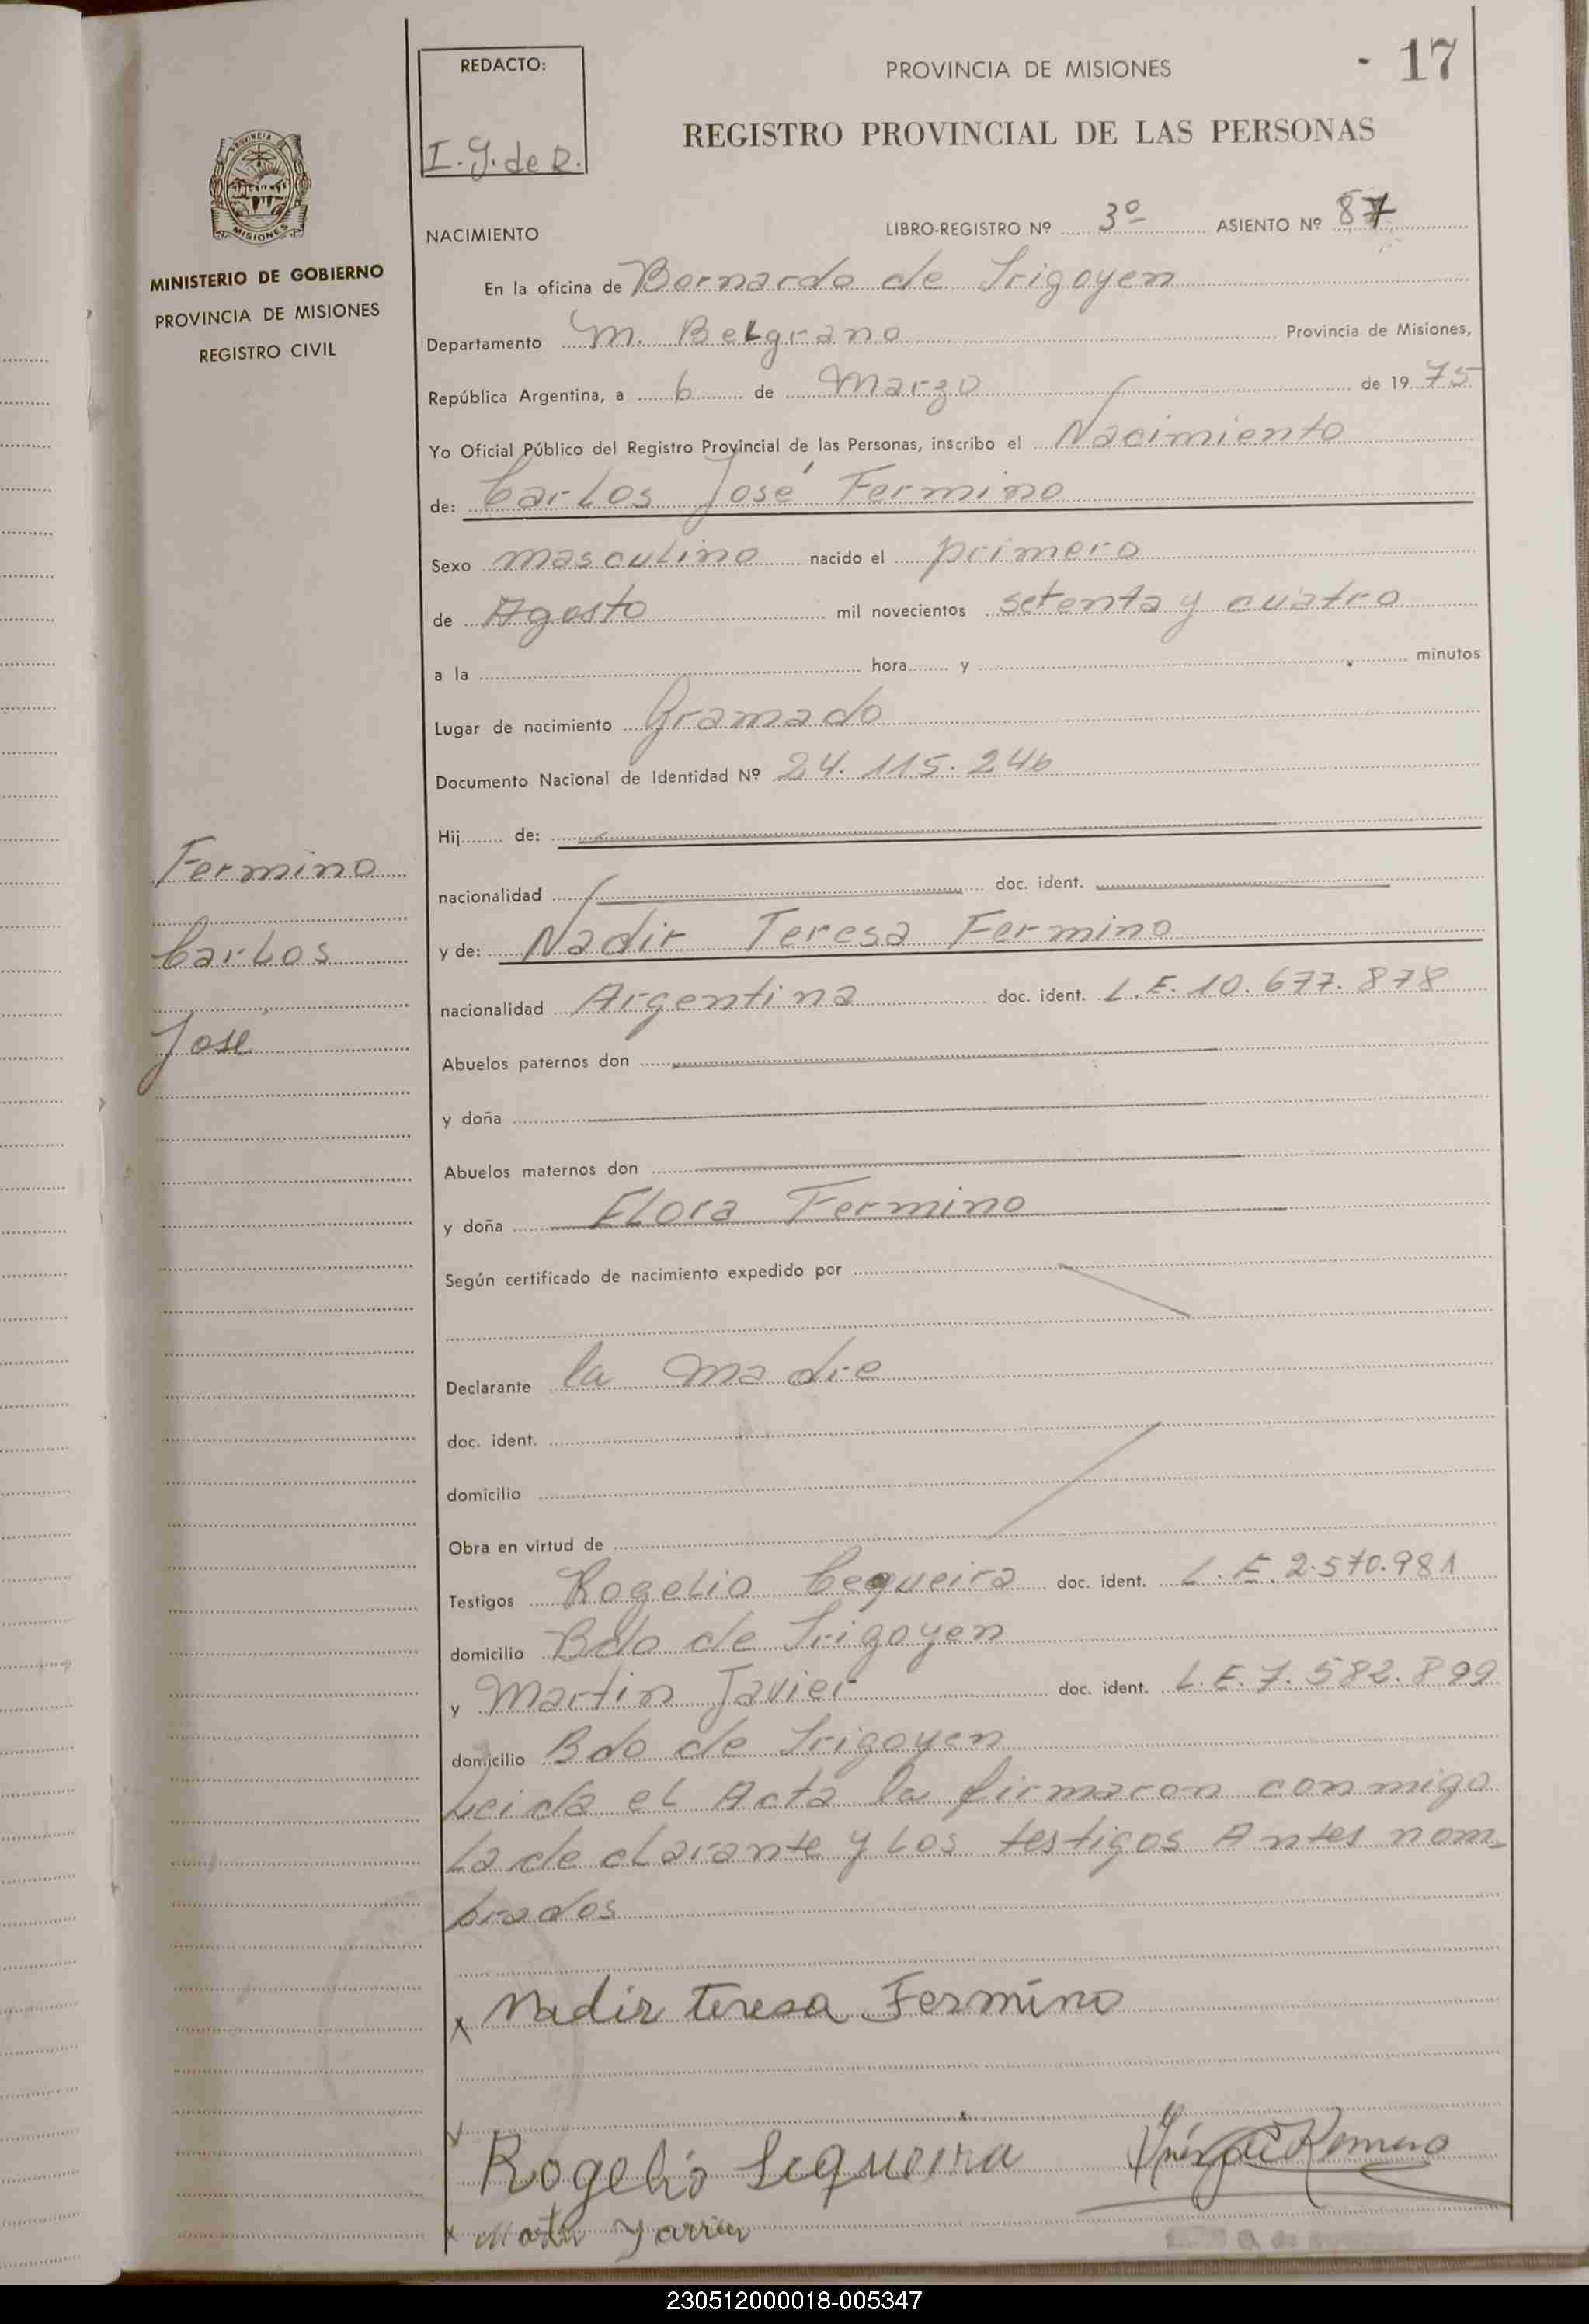 - 17
REDACTO:
I. G. de R.
PROVINCIA DE MISIONES
REGISTRO PROVINCIAL DE LAS PERSONAS
PROVINCIA
MISIONES
MINISTERIO DE GOBIERNO
PROVINCIA DE MISIONES
REGISTRO CIVIL
NACIMIENTO LIBRO-REGISTRO Nº 3º ASIENTO Nº 87
En la oficina de Bernardo de Irigoyen
Departamento M. Belgrano Provincia de Misiones,
República Argentina, a 6 de Marzo de 1975
Yo Oficial Público del Registro Provincial de las Personas, inscribo el Nacimiento
de: Carlos José Fermino
Sexo masculino nacido el primero
de Agosto mil novecientos setenta y cuatro
a la hora y minutos
Lugar de nacimiento Gramado
Documento Nacional de Identidad Nº 24.115.246
Hij de:
nacionalidad doc. ident.
y de: Nadir Teresa Fermino
nacionalidad Argentina doc. ident. L.E. 10.677.878
Abuelos paternos don
y doña
Abuelos maternos don
y doña Flora Fermino
Según certificado de nacimiento expedido por
Declarante la madre
doc. ident.
domicilio
Obra en virtud de
Testigos Rogelio Cequeira doc. ident. L.E. 2.570.981
domicilio Bdo de Irigoyen
y Martin Javier doc. ident. L.E. 7.582.899
domicilio Bdo de Irigoyen
Leida el Acta la firmaron conmigo
La declarante y Los testigos Antes nom-
brados
Fermino
Carlos
José
x Nadir Teresa Fermino
x Rogelio Sequeira
x Martin Javier
230512000018-005347